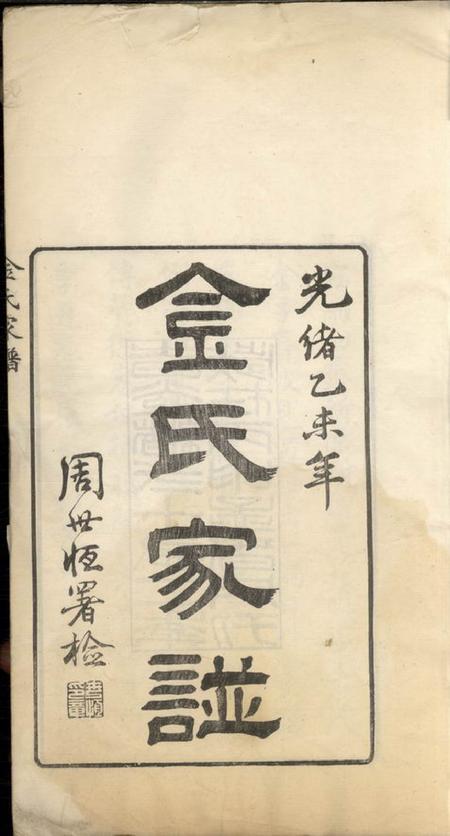 光緒乙未年
金氏家諩
周世恆署檢
金氏家譜